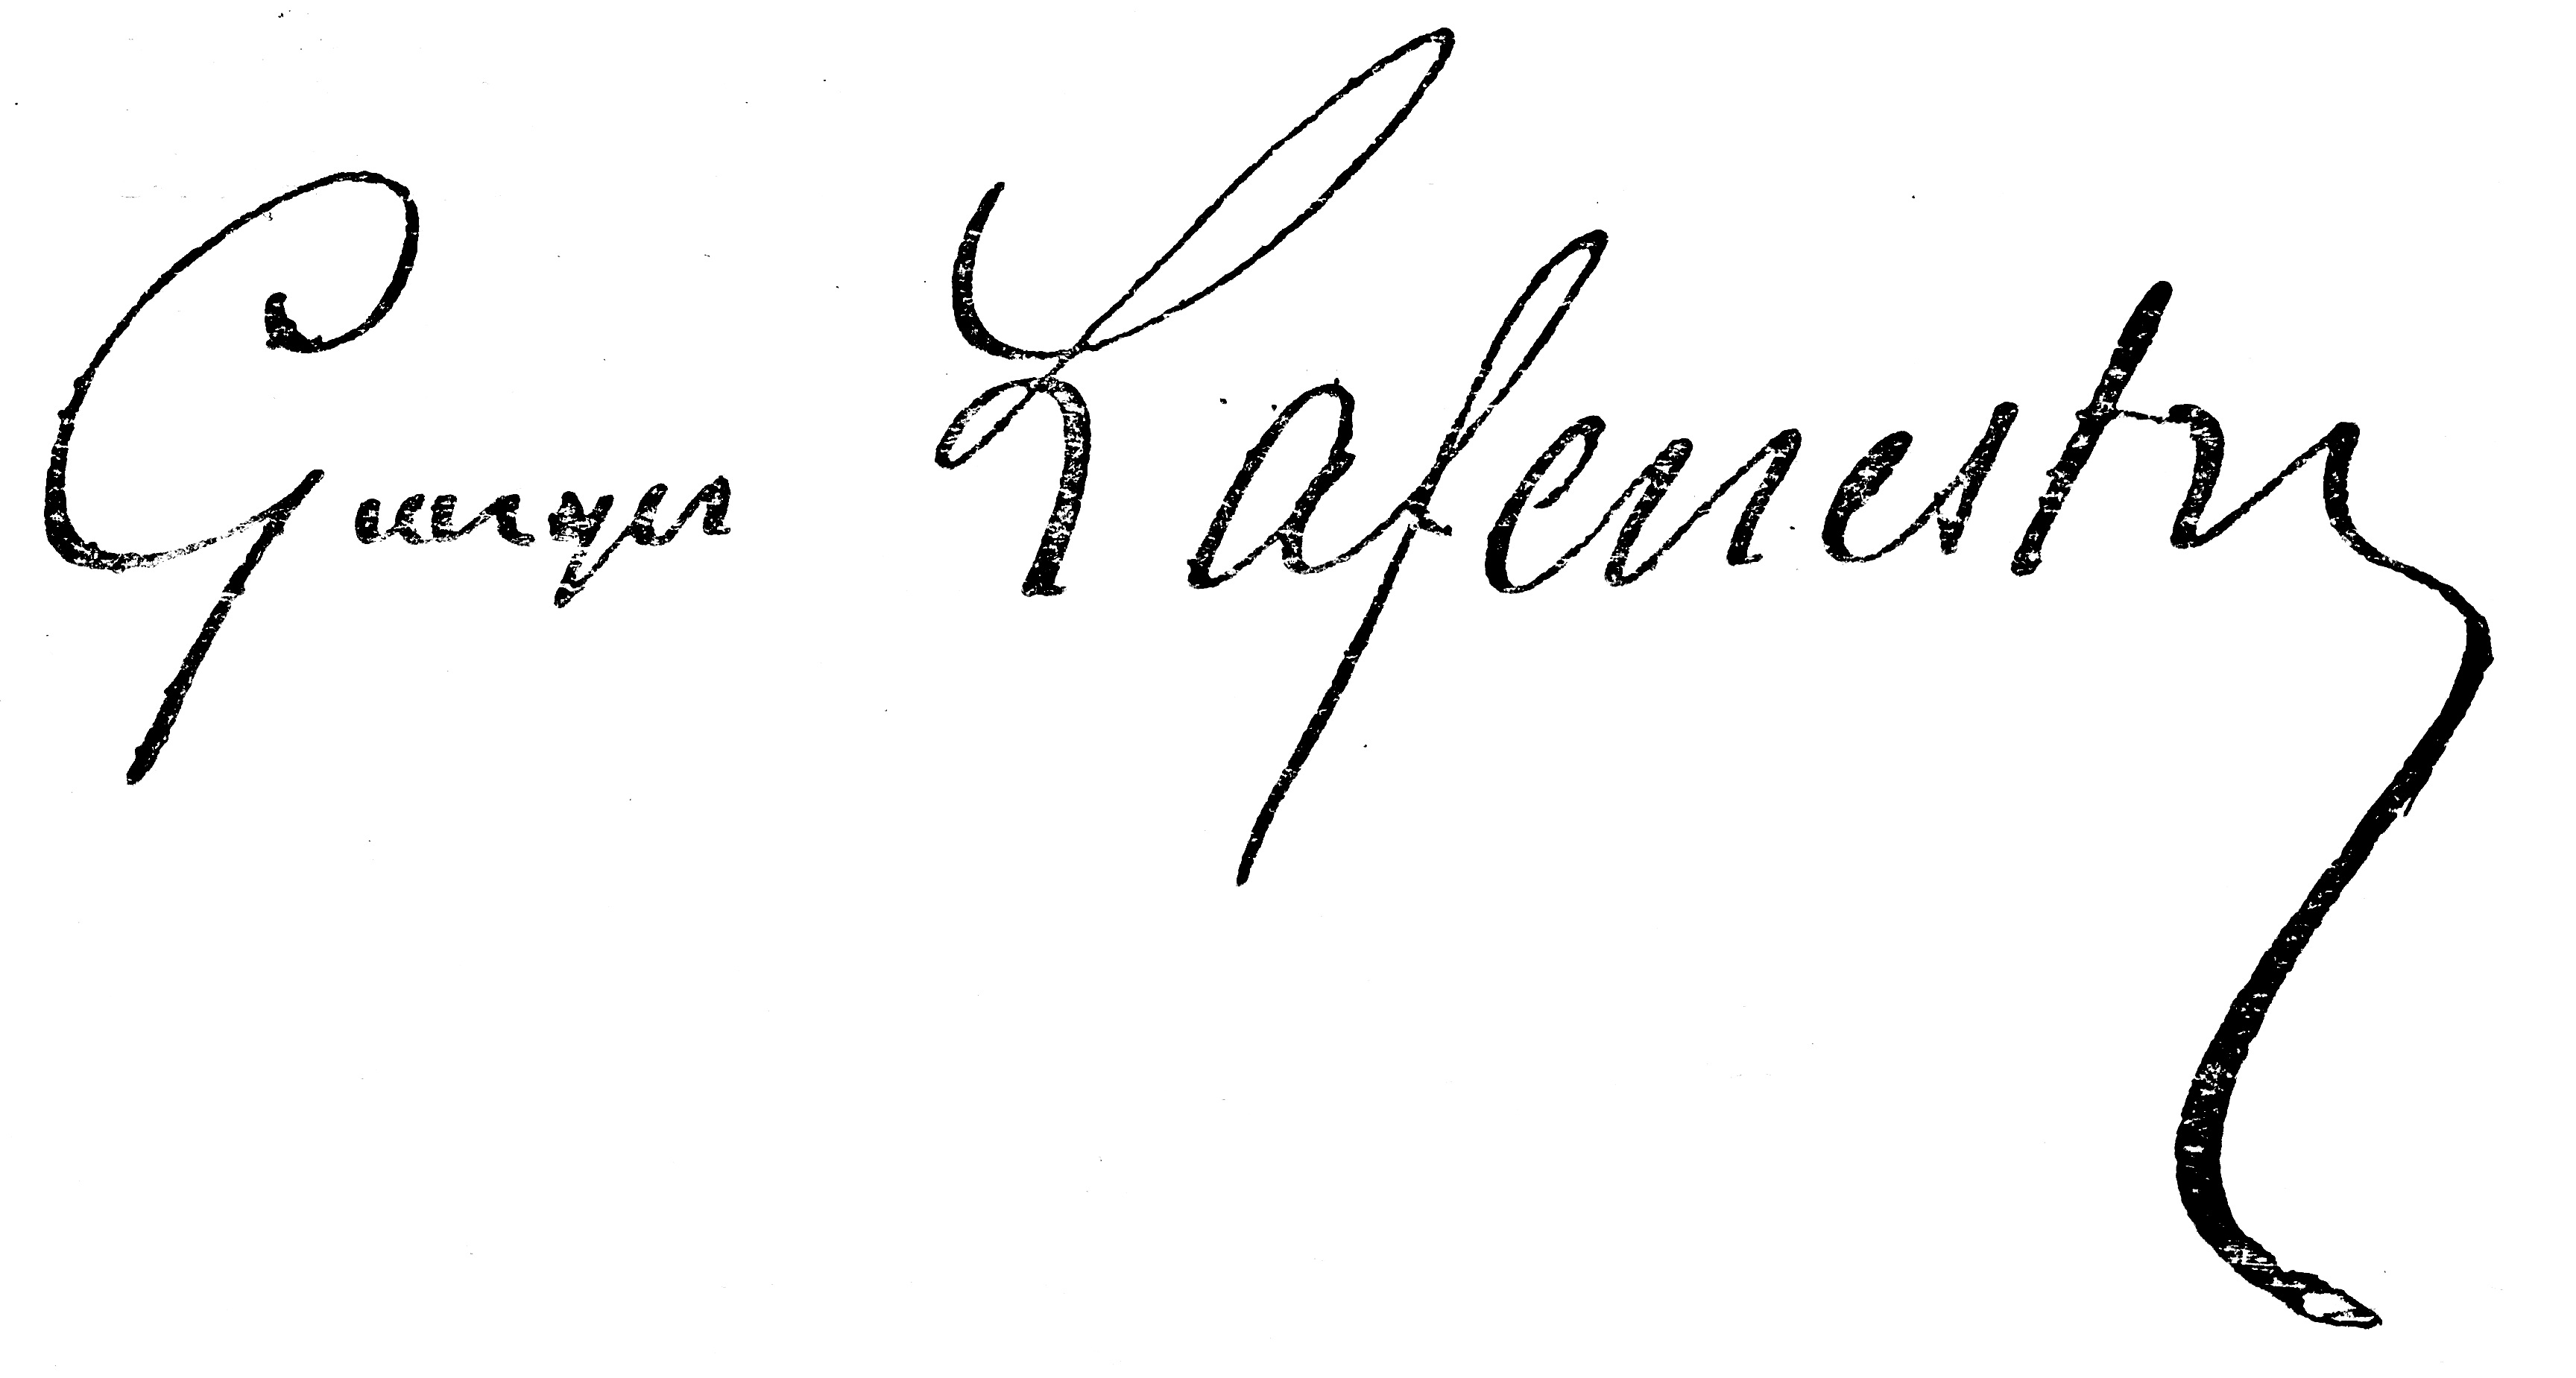 Georges Lafenestre